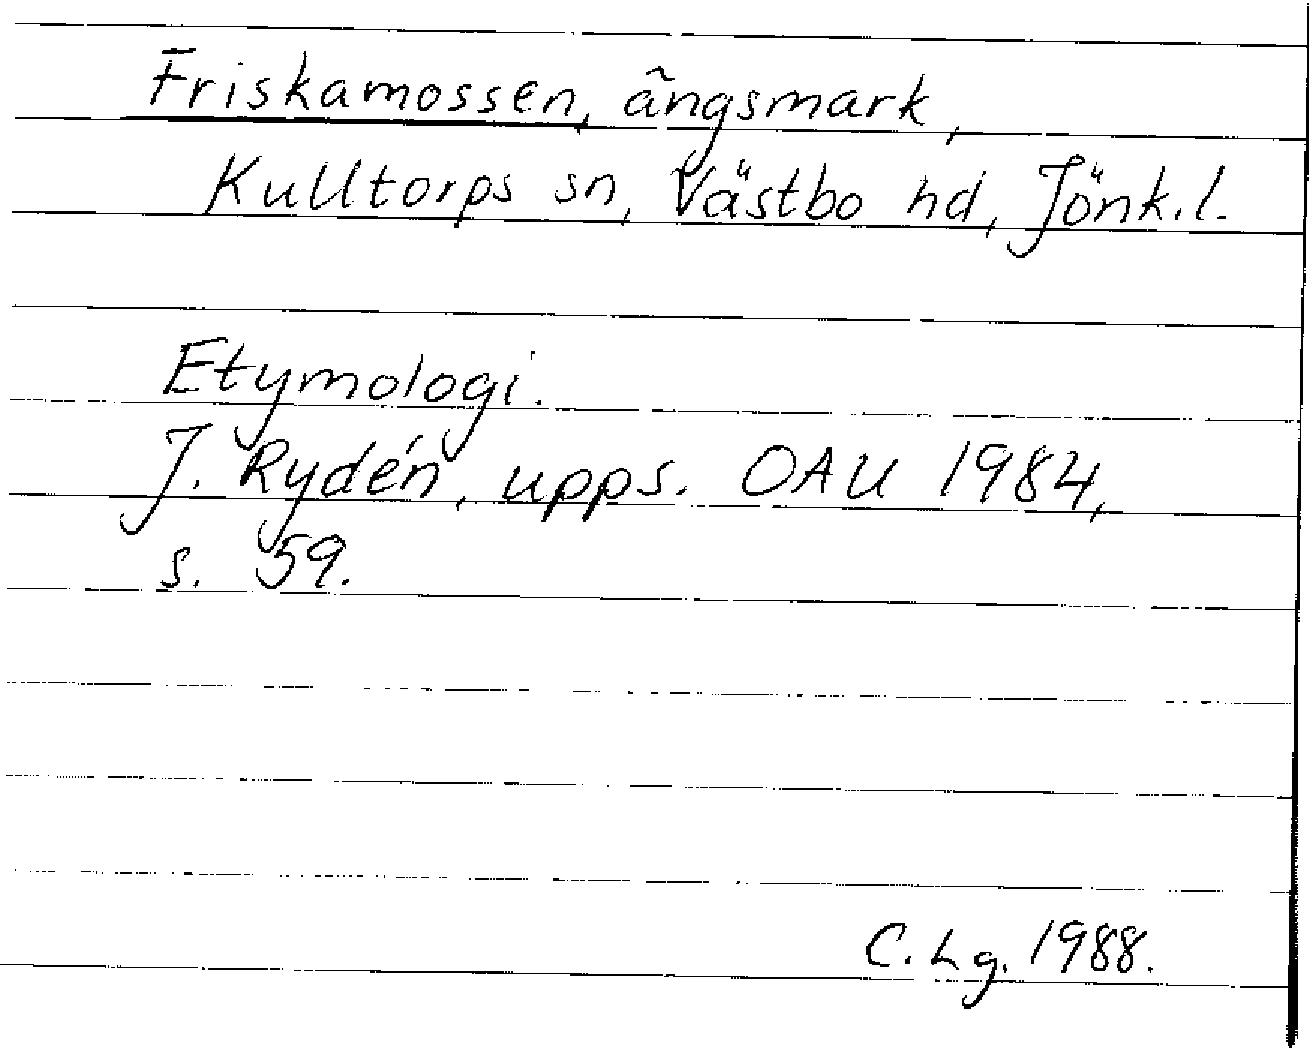 Friskamossen, ängsmark,
Kulltorps sn, Västbo hd, Jönk.l.
Etymologi.
J. Rydén, upps. OAU 1984,
s. 59.
C.Lg. 1988.